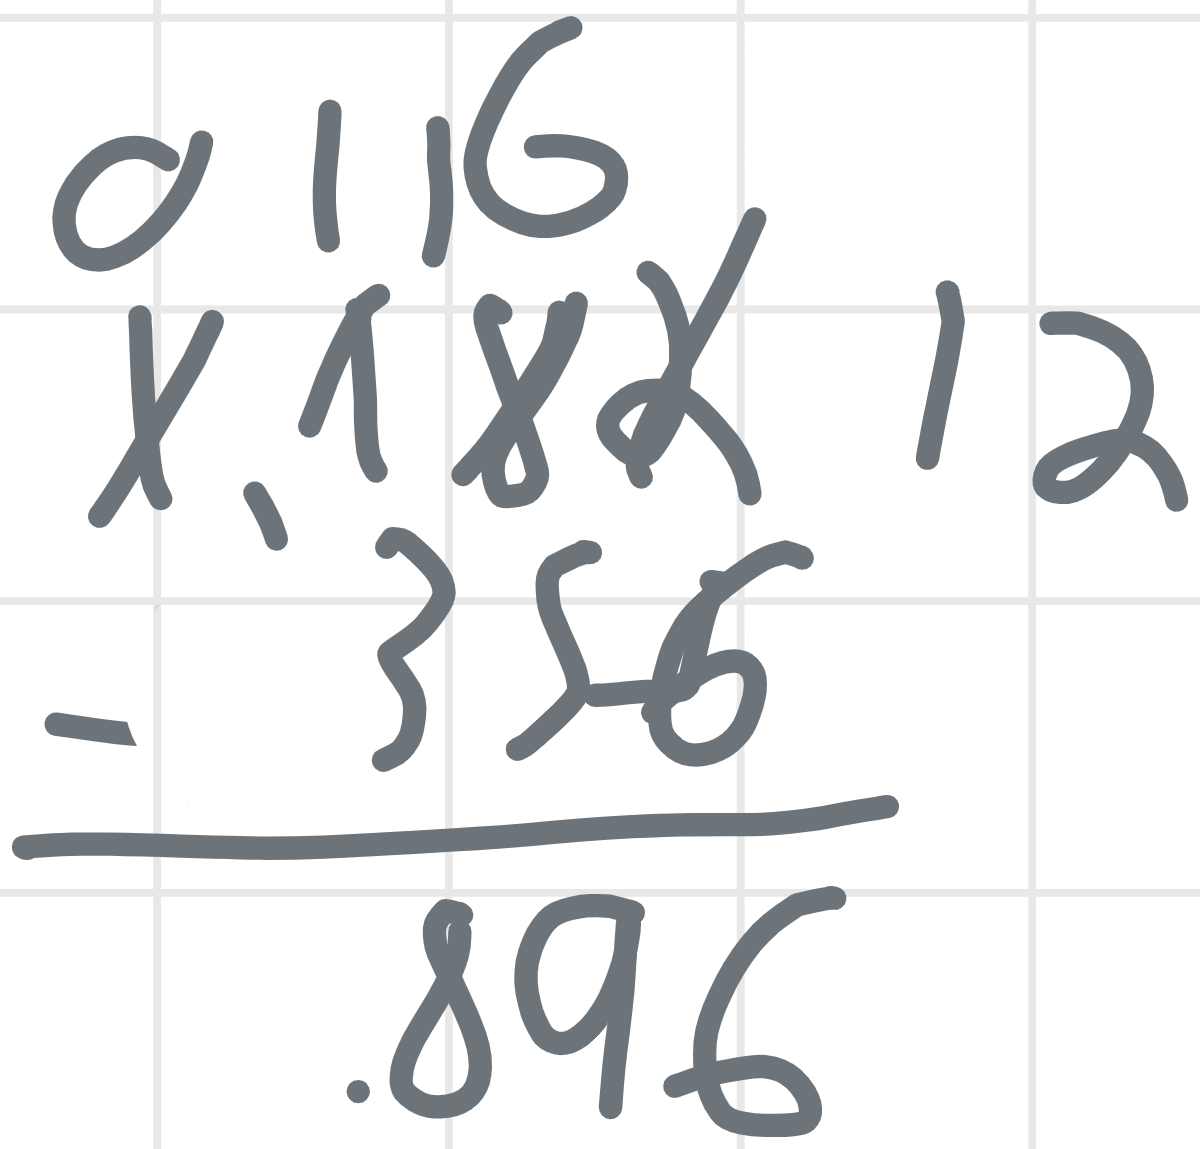 0 11 16
1.182 12
- 356
.896